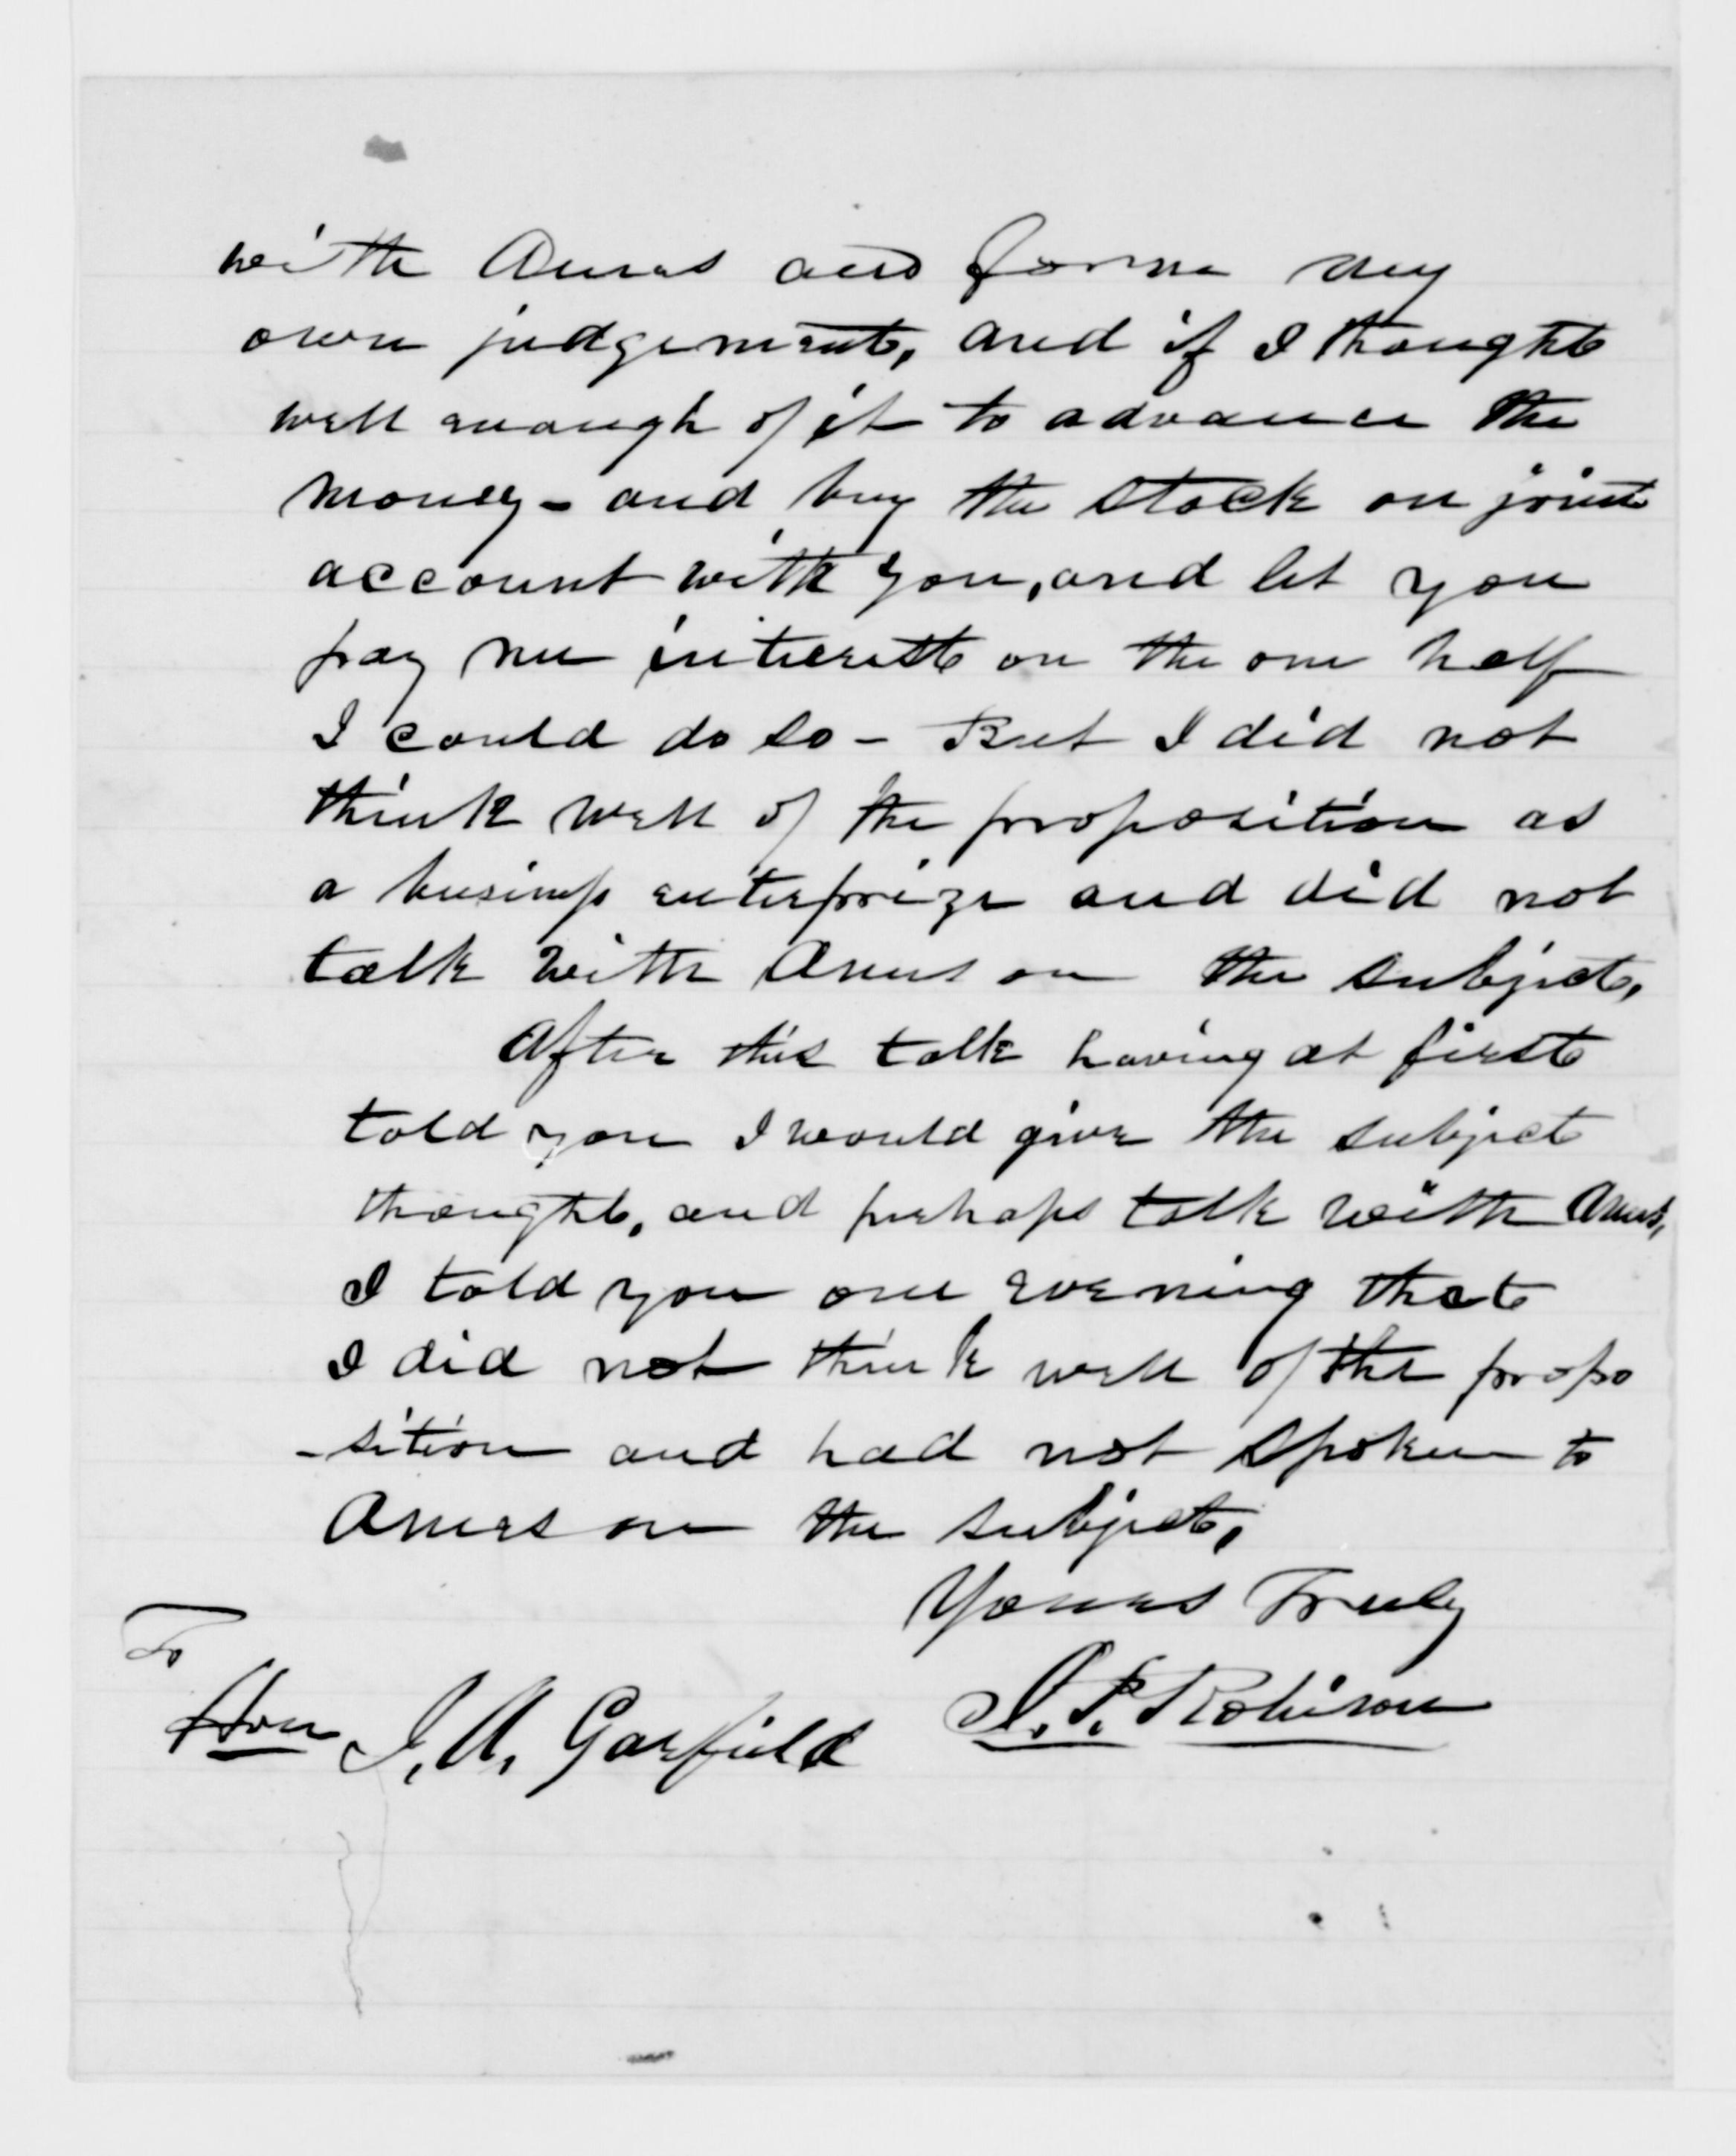 with Ames and form my
own judgement, and if I thought
well enough of it to advance the
money - and buy the stock on joint
account with you, and let you
pay me interest on the one half
I could do so - But I did not
think well of the proposition as
a business enterprize and did not
talk with Ames on the subject,
After this talk having at first
told you I would give the subject
thought, and perhaps talk with Ames,
I told you one evening that
I did not think well of the propo
-sition and had not spoken to
Ames on the subject,
Yours Truly
J. P. Robison
To
Hon J. A. Garfield